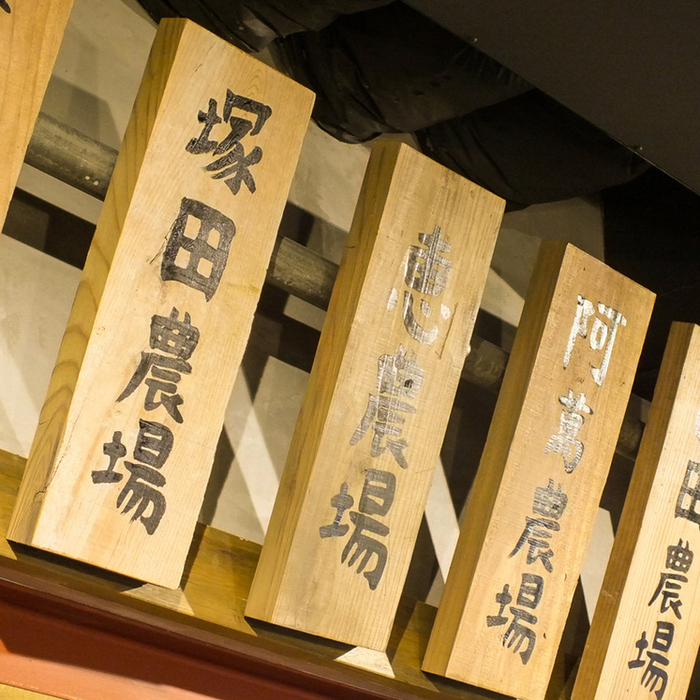 塚田農場
恵農場
阿萬農場
田農場